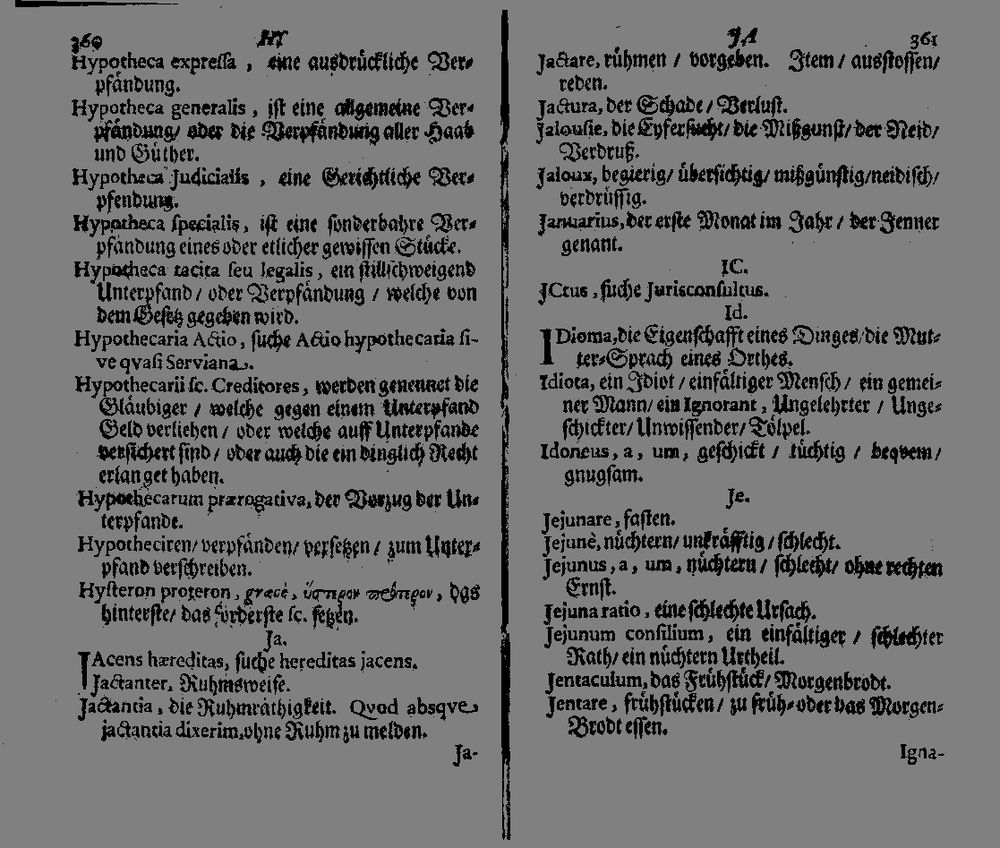 360 HY
Hypotheca expreſſa , eine ausdrückliche Ver⸗
pfändung.
Hypotheca generalis , iſt eine allgemeine Ver⸗
pfändung/ oder die Verpfändung aller Haab
und Güther.
Hypotheca Judicialis , eine Gerichtliche Ver⸗
pfendung.
Hypotheca ſpecialis , iſt eine ſonderbahre Ver⸗
pfändung eines oder etlicher gewiſſen Stücke.
Hypotheca tacita ſeu legalis , ein ſtillſchweigend
Unterpfand / oder Verpfändung / welche von
dem Geſetz gegeben wird.
Hypothecaria Actio, ſuche Actio hypothecaria ſi-
ve qvaſi Serviana.
Hypothecarii ſc. Creditores, werden genennet die
Gläubiger / welche gegen einem Unterpfand
Geld verliehen / oder welche auff Unterpfande
verſichert ſind / oder auch die ein dinglich Recht
erlanget haben.
Hypothecarum prærogativa, der Vorzug der Un⸗
terpfande.
Hypotheciren/ verpfänden/ verſetzen / zum Unter⸗
pfand verſchreiben.
Hyſteron proteron, græcè, ὕστερον πρότερον, das
hinterſte/ das förderſte ſc. ſetzen.
Ja.
JAcens hæreditas, ſuche hereditas jacens.
Jactanter, Ruhmsweiſe.
Jactantia , die Ruhmräthigkeit. Qvod absqve
jactantia dixerim, ohne Ruhm zu melden.
Ja-
JA 361
Jactare, rühmen / vorgeben. Item / ausſtoſſen/
reden.
Jactura, der Schade / Verluſt.
Jalouſie, die Eyferſucht/ die Mißgunſt/ der Neid/
Verdruß.
Jaloux, begierig/ überſichtig/ mißgünſtig/ neidiſch/
verdrüſſig.
Januarius, der erſte Monat im Jahr / der Jenner
genant.
IC.
JCtus , ſuche Jurisconſultus.
Id.
IDioma, die Eigenſchafft eines Dinges/ die Mut⸗
ter⸗Sprach eines Orthes.
Idiota, ein Idiot / einfältiger Menſch / ein gemei⸗
ner Mann/ ein Ignorant , Ungelehrter / Unge⸗
ſchickter/ Unwiſſender/ Tölpel.
Idoneus, a, um, geſchickt / tüchtig / beqvem/
gnugſam.
Je.
Jejunare, faſten.
Jejunè, nüchtern/ unkräfftig / ſchlecht.
Jejunus, a, um, nüchtern / ſchlecht/ ohne rechten
Ernſt.
Jejuna ratio , eine ſchlechte Urſach.
Jejunum conſilium, ein einfältiger / ſchlechter
Rath/ ein nüchtern Urtheil.
Jentaculum, das Frühſtück/ Morgenbrodt.
Jentare , frühſtücken / zu früh⸗ oder das Morgen⸗
Brodt eſſen.
Igna-